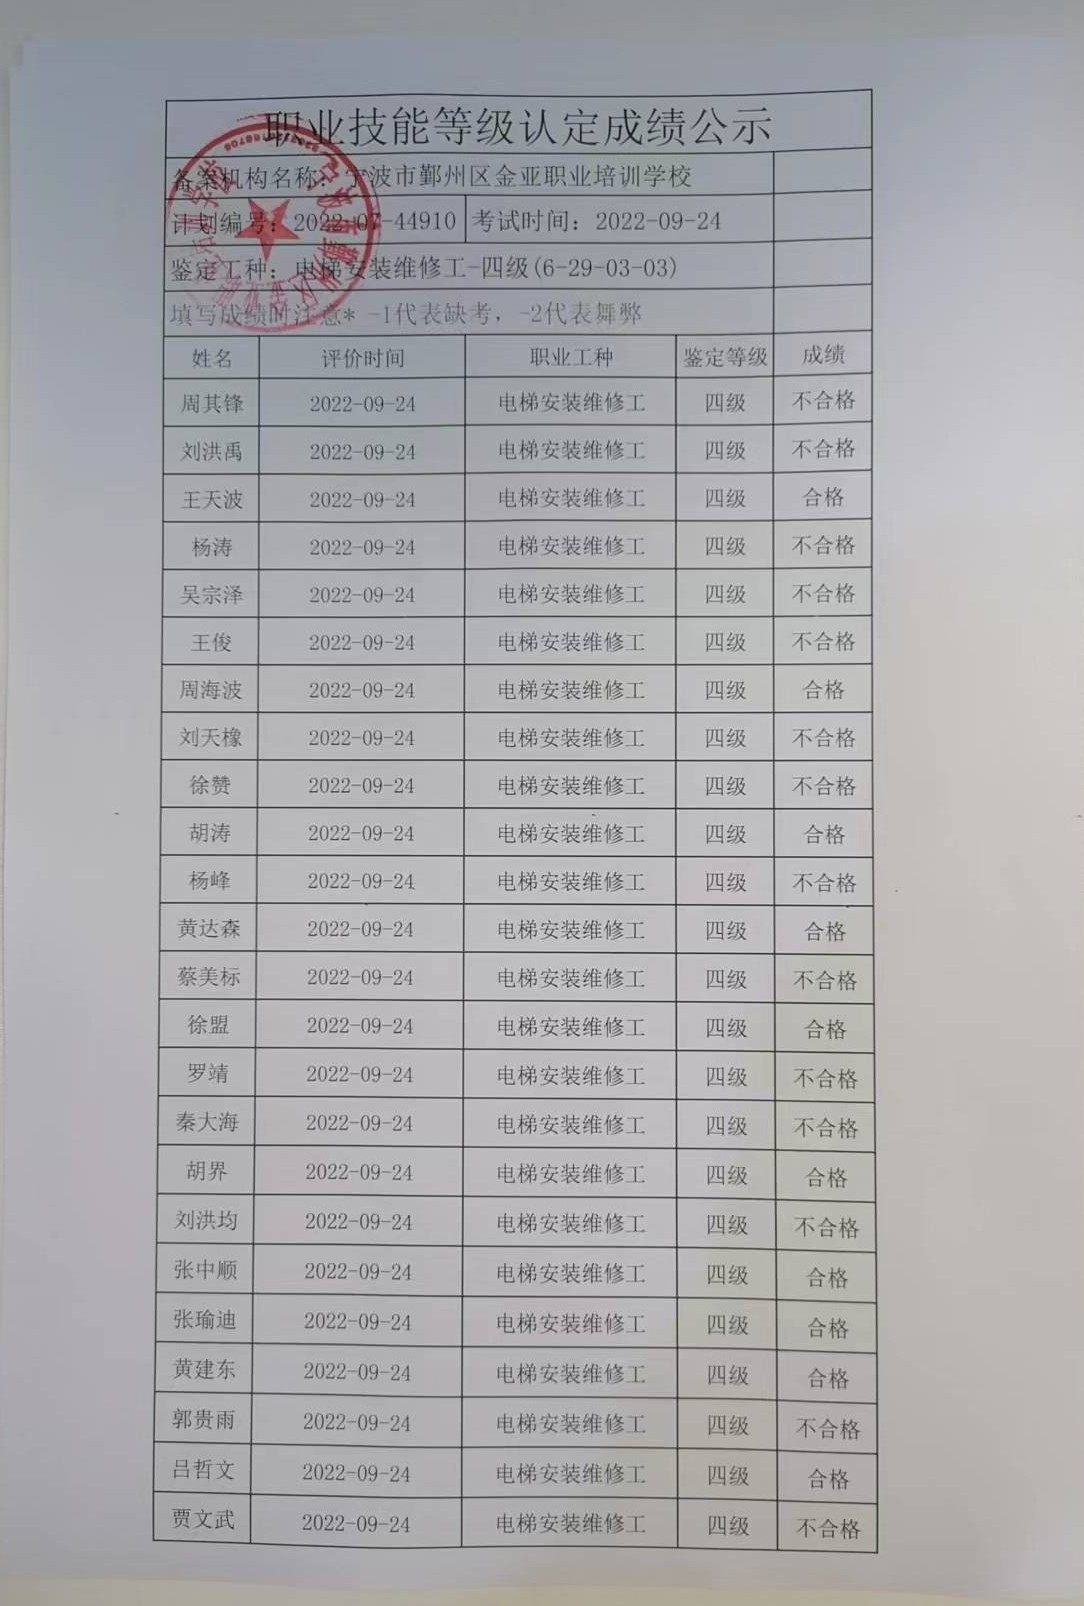 职业技能等级认定成绩公示
备案机构名称：宁波市鄞州区金亚职业培训学校
计划编号：2022-07-44910 考试时间：2022-09-24
鉴定工种：电梯安装维修工-四级(6-29-03-03)
填写成绩时注意* -1代表缺考，-2代表舞弊
姓名 评价时间 职业工种 鉴定等级 成绩
周其锋 2022-09-24 电梯安装维修工 四级 不合格
刘洪禹 2022-09-24 电梯安装维修工 四级 不合格
王天波 2022-09-24 电梯安装维修工 四级 合格
杨涛 2022-09-24 电梯安装维修工 四级 不合格
吴宗泽 2022-09-24 电梯安装维修工 四级 不合格
王俊 2022-09-24 电梯安装维修工 四级 不合格
周海波 2022-09-24 电梯安装维修工 四级 合格
刘天橡 2022-09-24 电梯安装维修工 四级 不合格
徐赞 2022-09-24 电梯安装维修工 四级 不合格
胡涛 2022-09-24 电梯安装维修工 四级 合格
杨峰 2022-09-24 电梯安装维修工 四级 不合格
黄达森 2022-09-24 电梯安装维修工 四级 合格
蔡美标 2022-09-24 电梯安装维修工 四级 不合格
徐盟 2022-09-24 电梯安装维修工 四级 合格
罗靖 2022-09-24 电梯安装维修工 四级 不合格
秦大海 2022-09-24 电梯安装维修工 四级 不合格
胡界 2022-09-24 电梯安装维修工 四级 合格
刘洪均 2022-09-24 电梯安装维修工 四级 不合格
张中顺 2022-09-24 电梯安装维修工 四级 合格
张瑜迪 2022-09-24 电梯安装维修工 四级 合格
黄建东 2022-09-24 电梯安装维修工 四级 合格
郭贵雨 2022-09-24 电梯安装维修工 四级 不合格
吕哲文 2022-09-24 电梯安装维修工 四级 合格
贾文武 2022-09-24 电梯安装维修工 四级 不合格